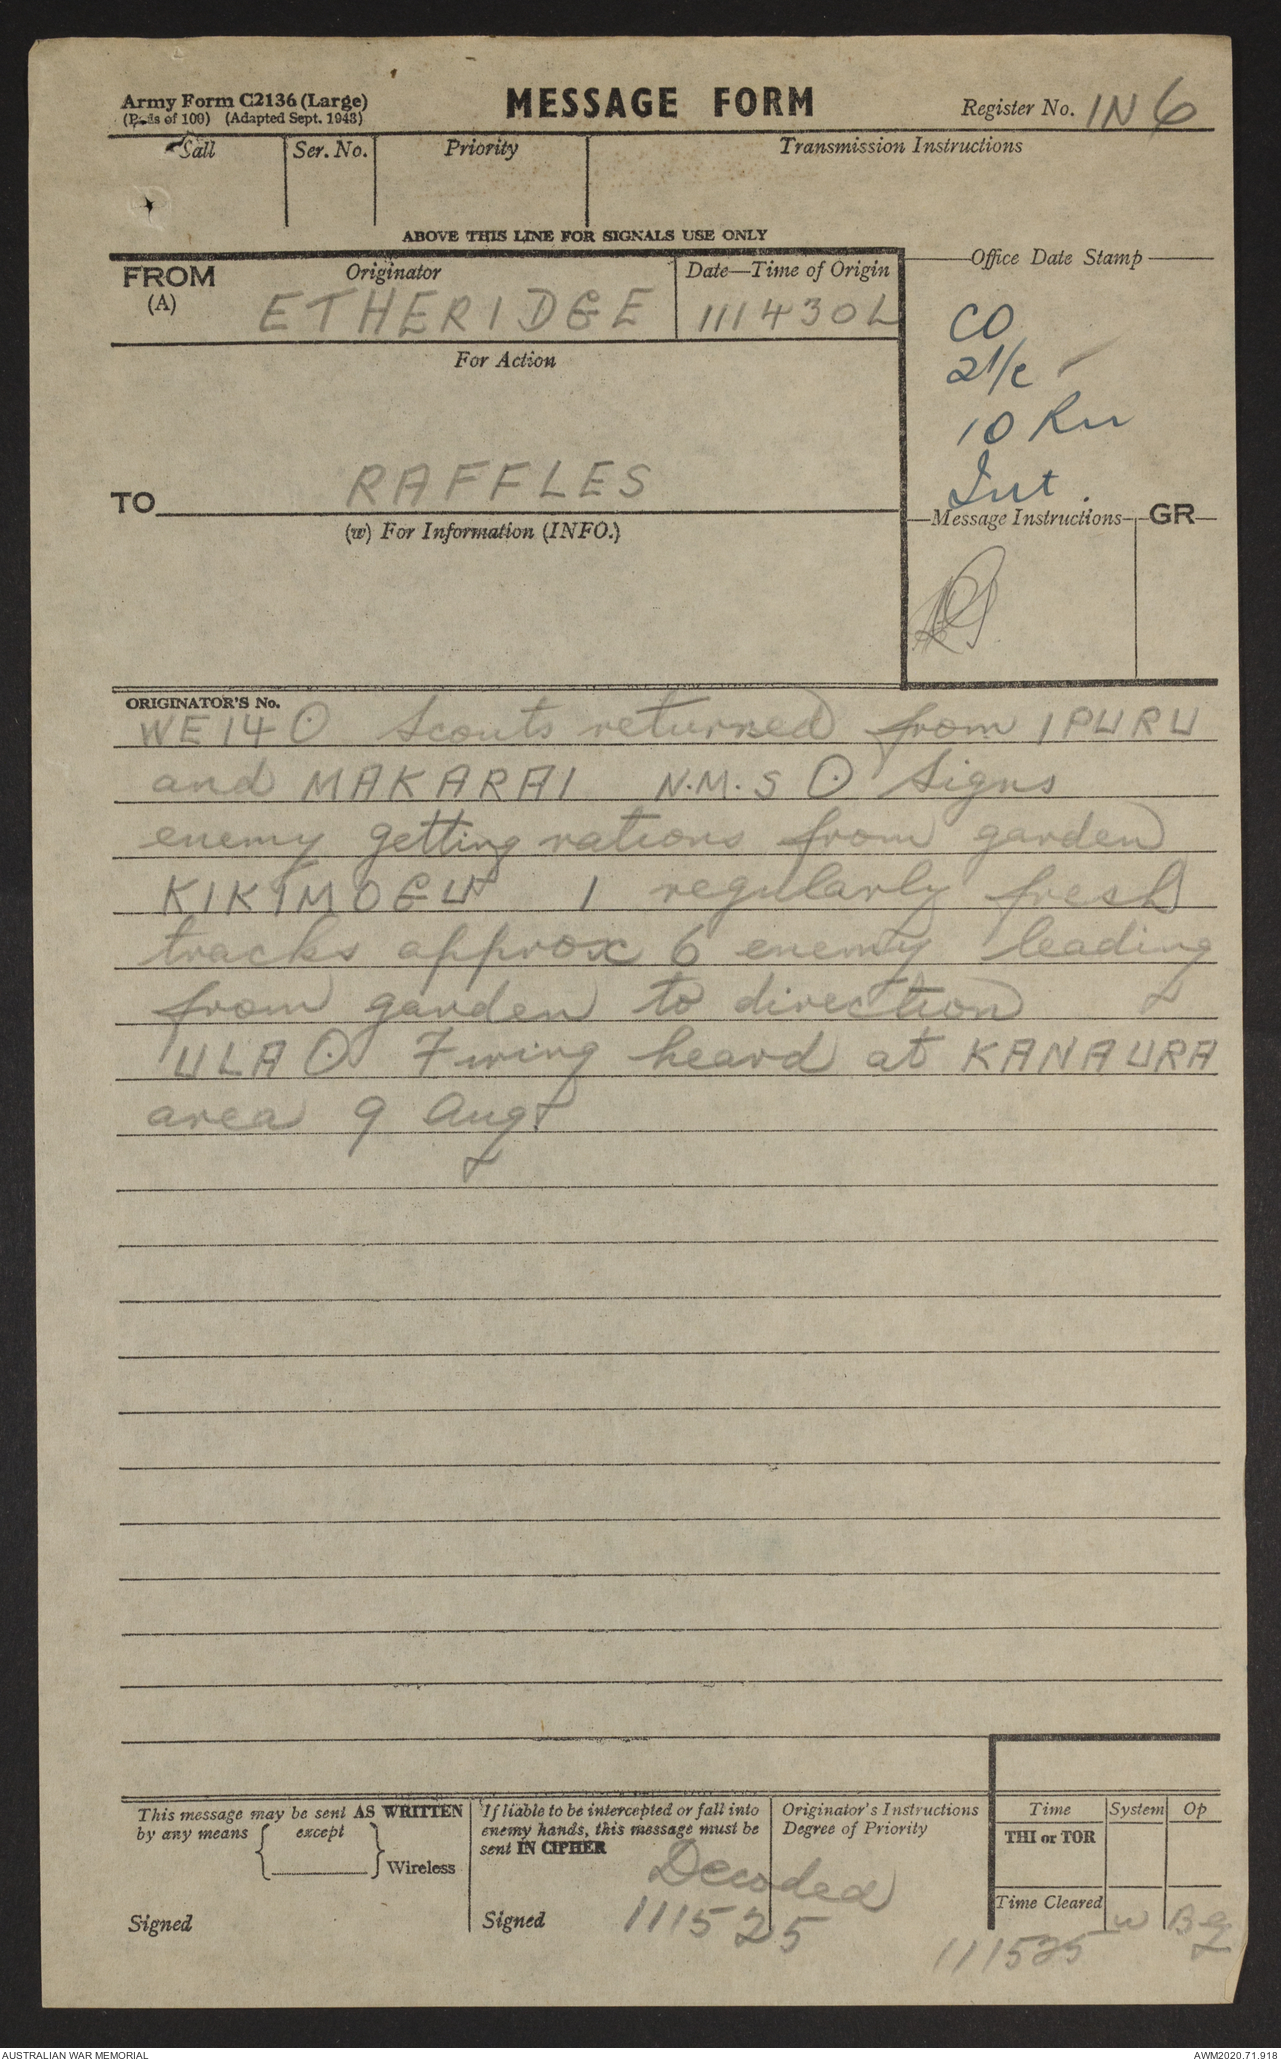 Army Form C2136 (Large)
(Pads of 100) (Adapted Sept. 1943)
MESSAGE FORM
Register No. IN 6
Call
Ser. No.
Priority
Transmission Instructions
ABOVE THIS LINE FOR SIGNALS USE ONLY
FROM
(A)
Originator
ETHERIDGE
Date—Time of Origin
111430L
Office Date Stamp
CO
2 I/c
10 Rn
Int.
For Action
TO RAFFLES
(w) For Information (INFO.)
Message Instructions
GR
ORIGINATOR'S No.
WE 14 O Scouts returned from IPURU
and MAKARAI N.M.S O Signs
enemy getting rations from garden
KIKIMOGU 1 regularly fresh
tracks approx 6 enemy leading
from garden to direction
ULA O Firing heard at KANAURA
area 9 Augt
This message may be sent AS WRITTEN
by any means { except } Wireless
Signed
If liable to be intercepted or fall into
enemy hands, this message must be
sent IN CIPHER
Signed
Decoded
111525
Originator's Instructions
Degree of Priority
Time
System
Op
THI or TOR
Time Cleared
111525
W
AUSTRALIAN WAR MEMORIAL
AWM2020.71.918